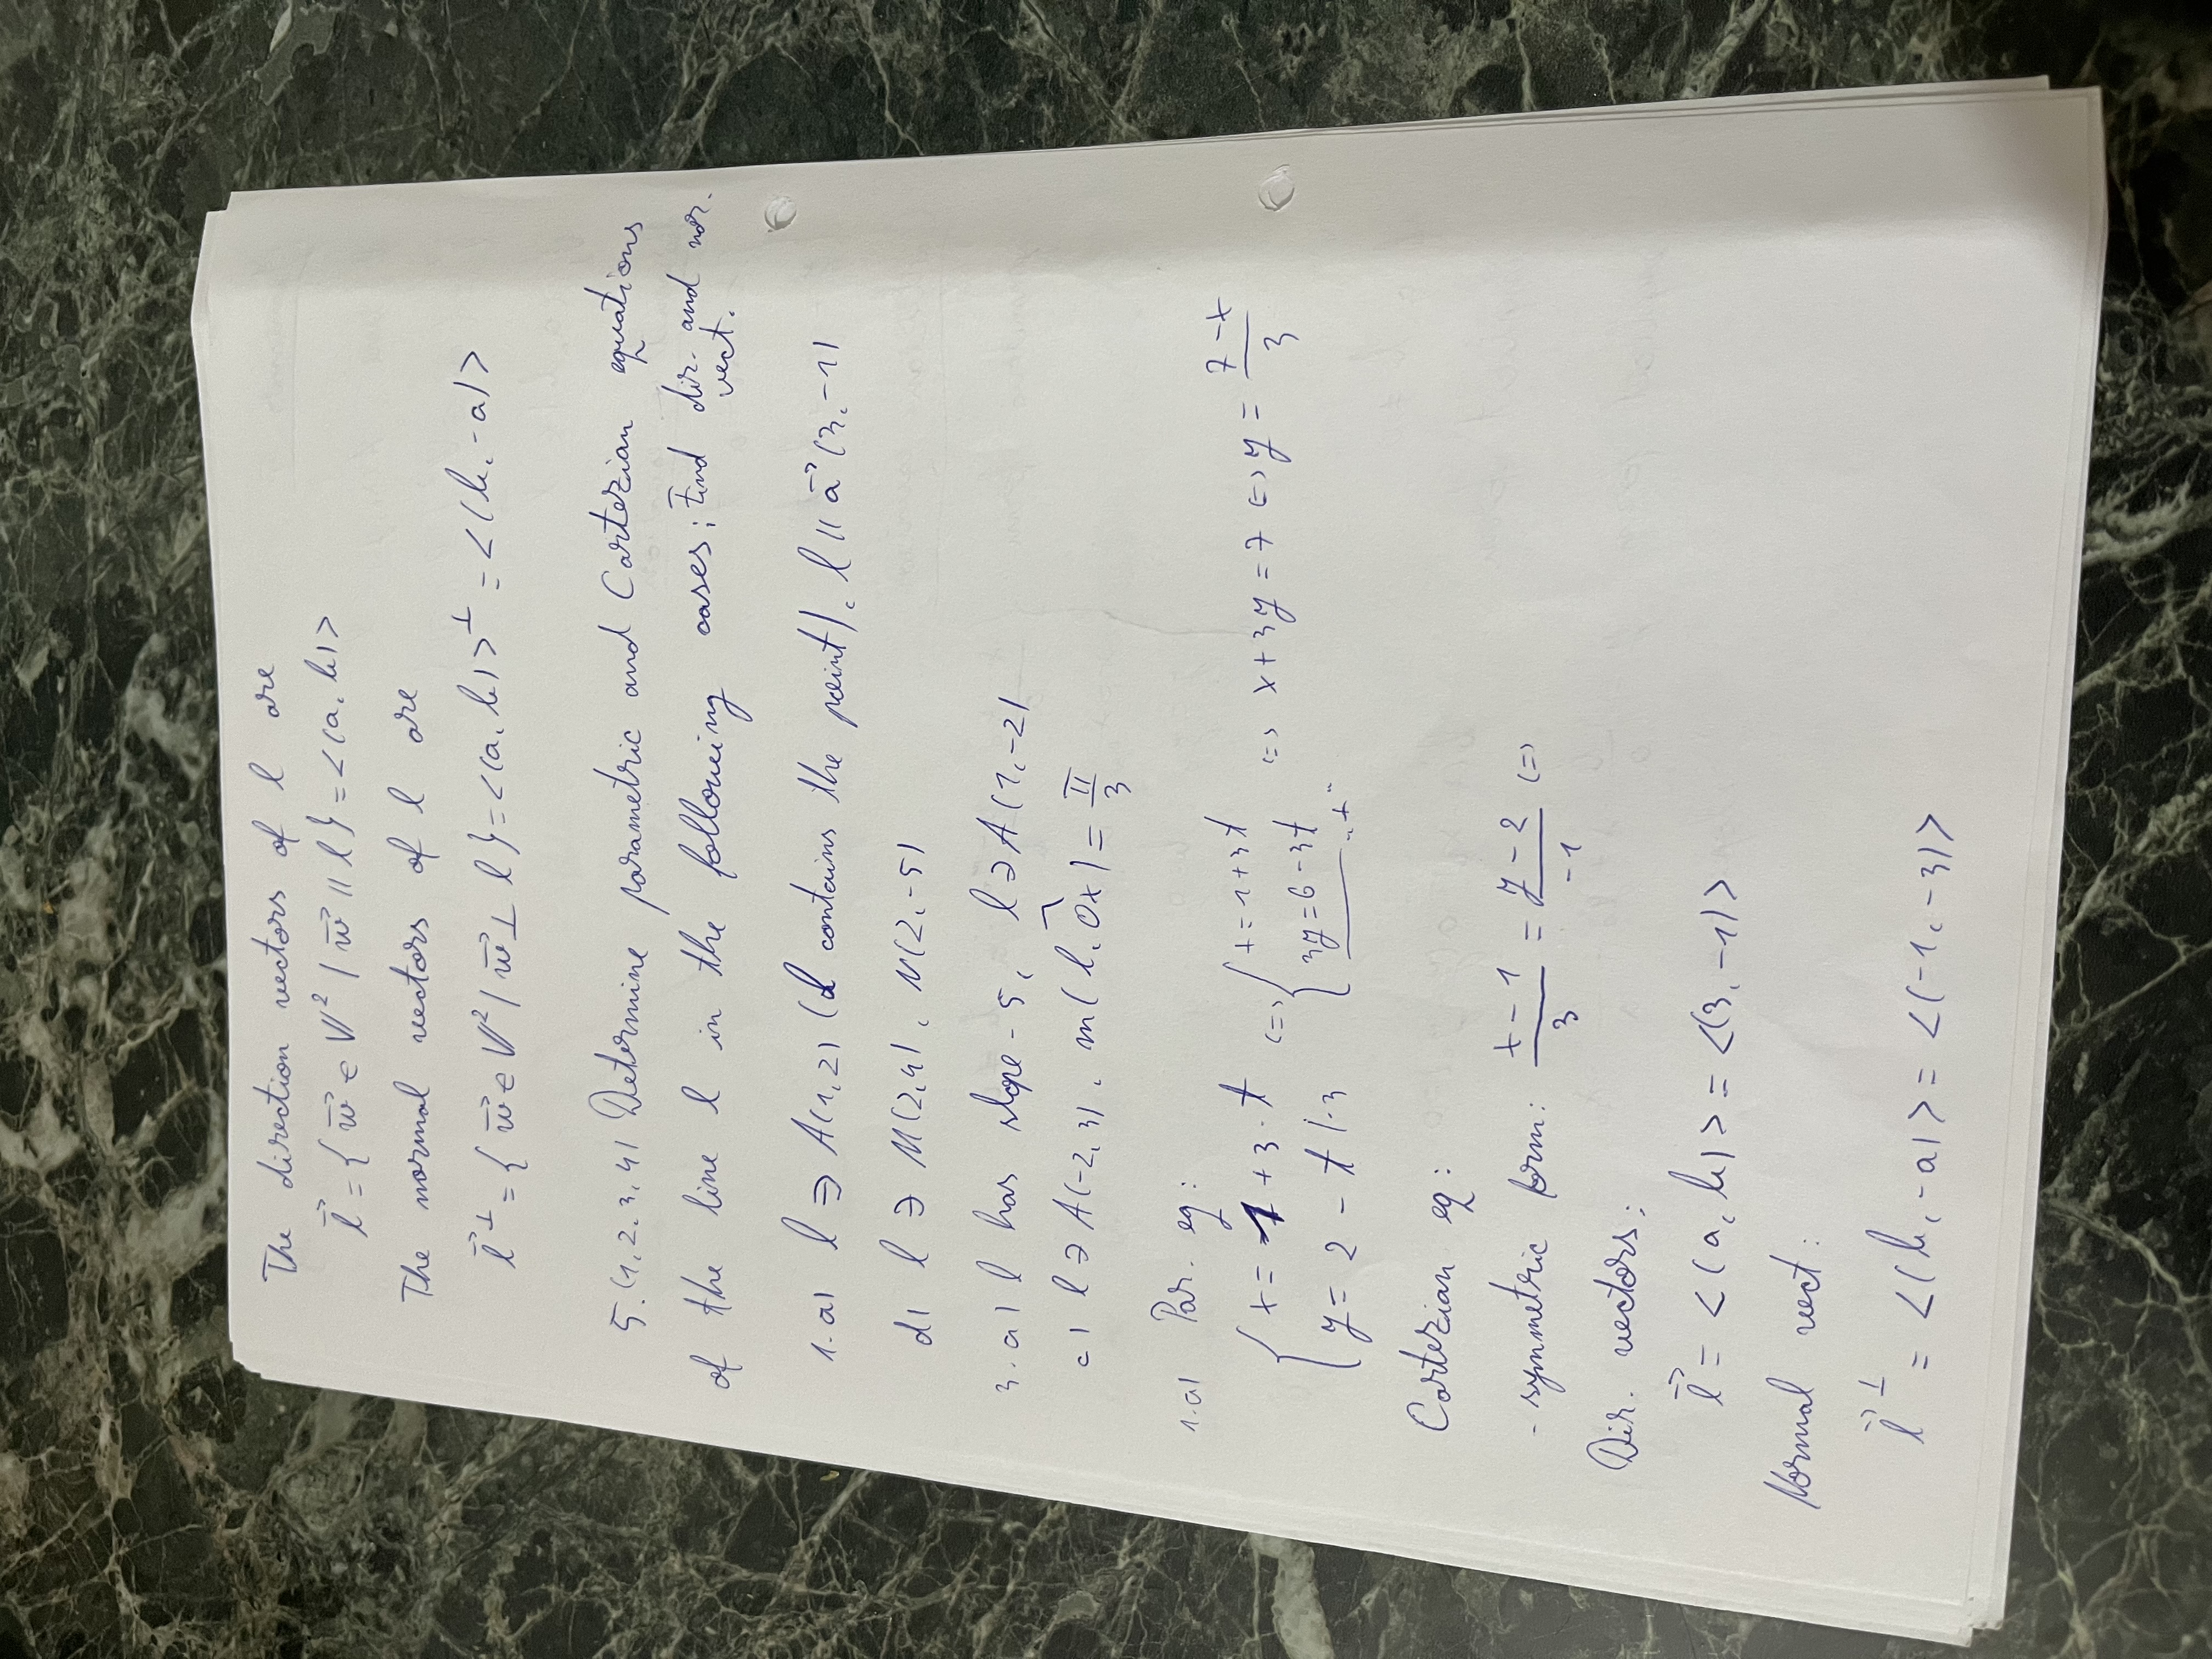 The direction vectors of l are
l⃗ = { w⃗ ∈ V² | w⃗ ∥ l } = <(a, b)>
The normal vectors of l are
l⃗^⊥ = { w⃗ ∈ V² | w⃗ ⊥ l } = <(a, b)>^⊥ = <(b, -a)>
5.(1,2,3,4) Determine parametric and Cartezian equations
of the line l in the following cases; Find dir. and nor.
vect.
1.a) l ∋ A(1,2) (l contains the point), l ∥ a⃗ (3, -1)
d) l ∋ M(2,4), N(2,-5)
3.a) l has slope -5, l ∋ A(1,-2)
c) l ∋ A(-2,3), m(l, Ox) = π/3
1.a) Par. eq:
{ x = 1 + 3·t <=> { x = 1+3t <=> x+3y = 7 <=> y = (7-x)/3
y = 2 - t |·3 3y = 6 - 3t
"+"
Cartezian eq:
- symmetric form: (x-1)/3 = (y-2)/-1 <=>
Dir. vectors:
l⃗ = <(a, b)> = <(3, -1)>
Normal vect:
l⃗^⊥ = <(b, -a)> = <(-1, -3)>